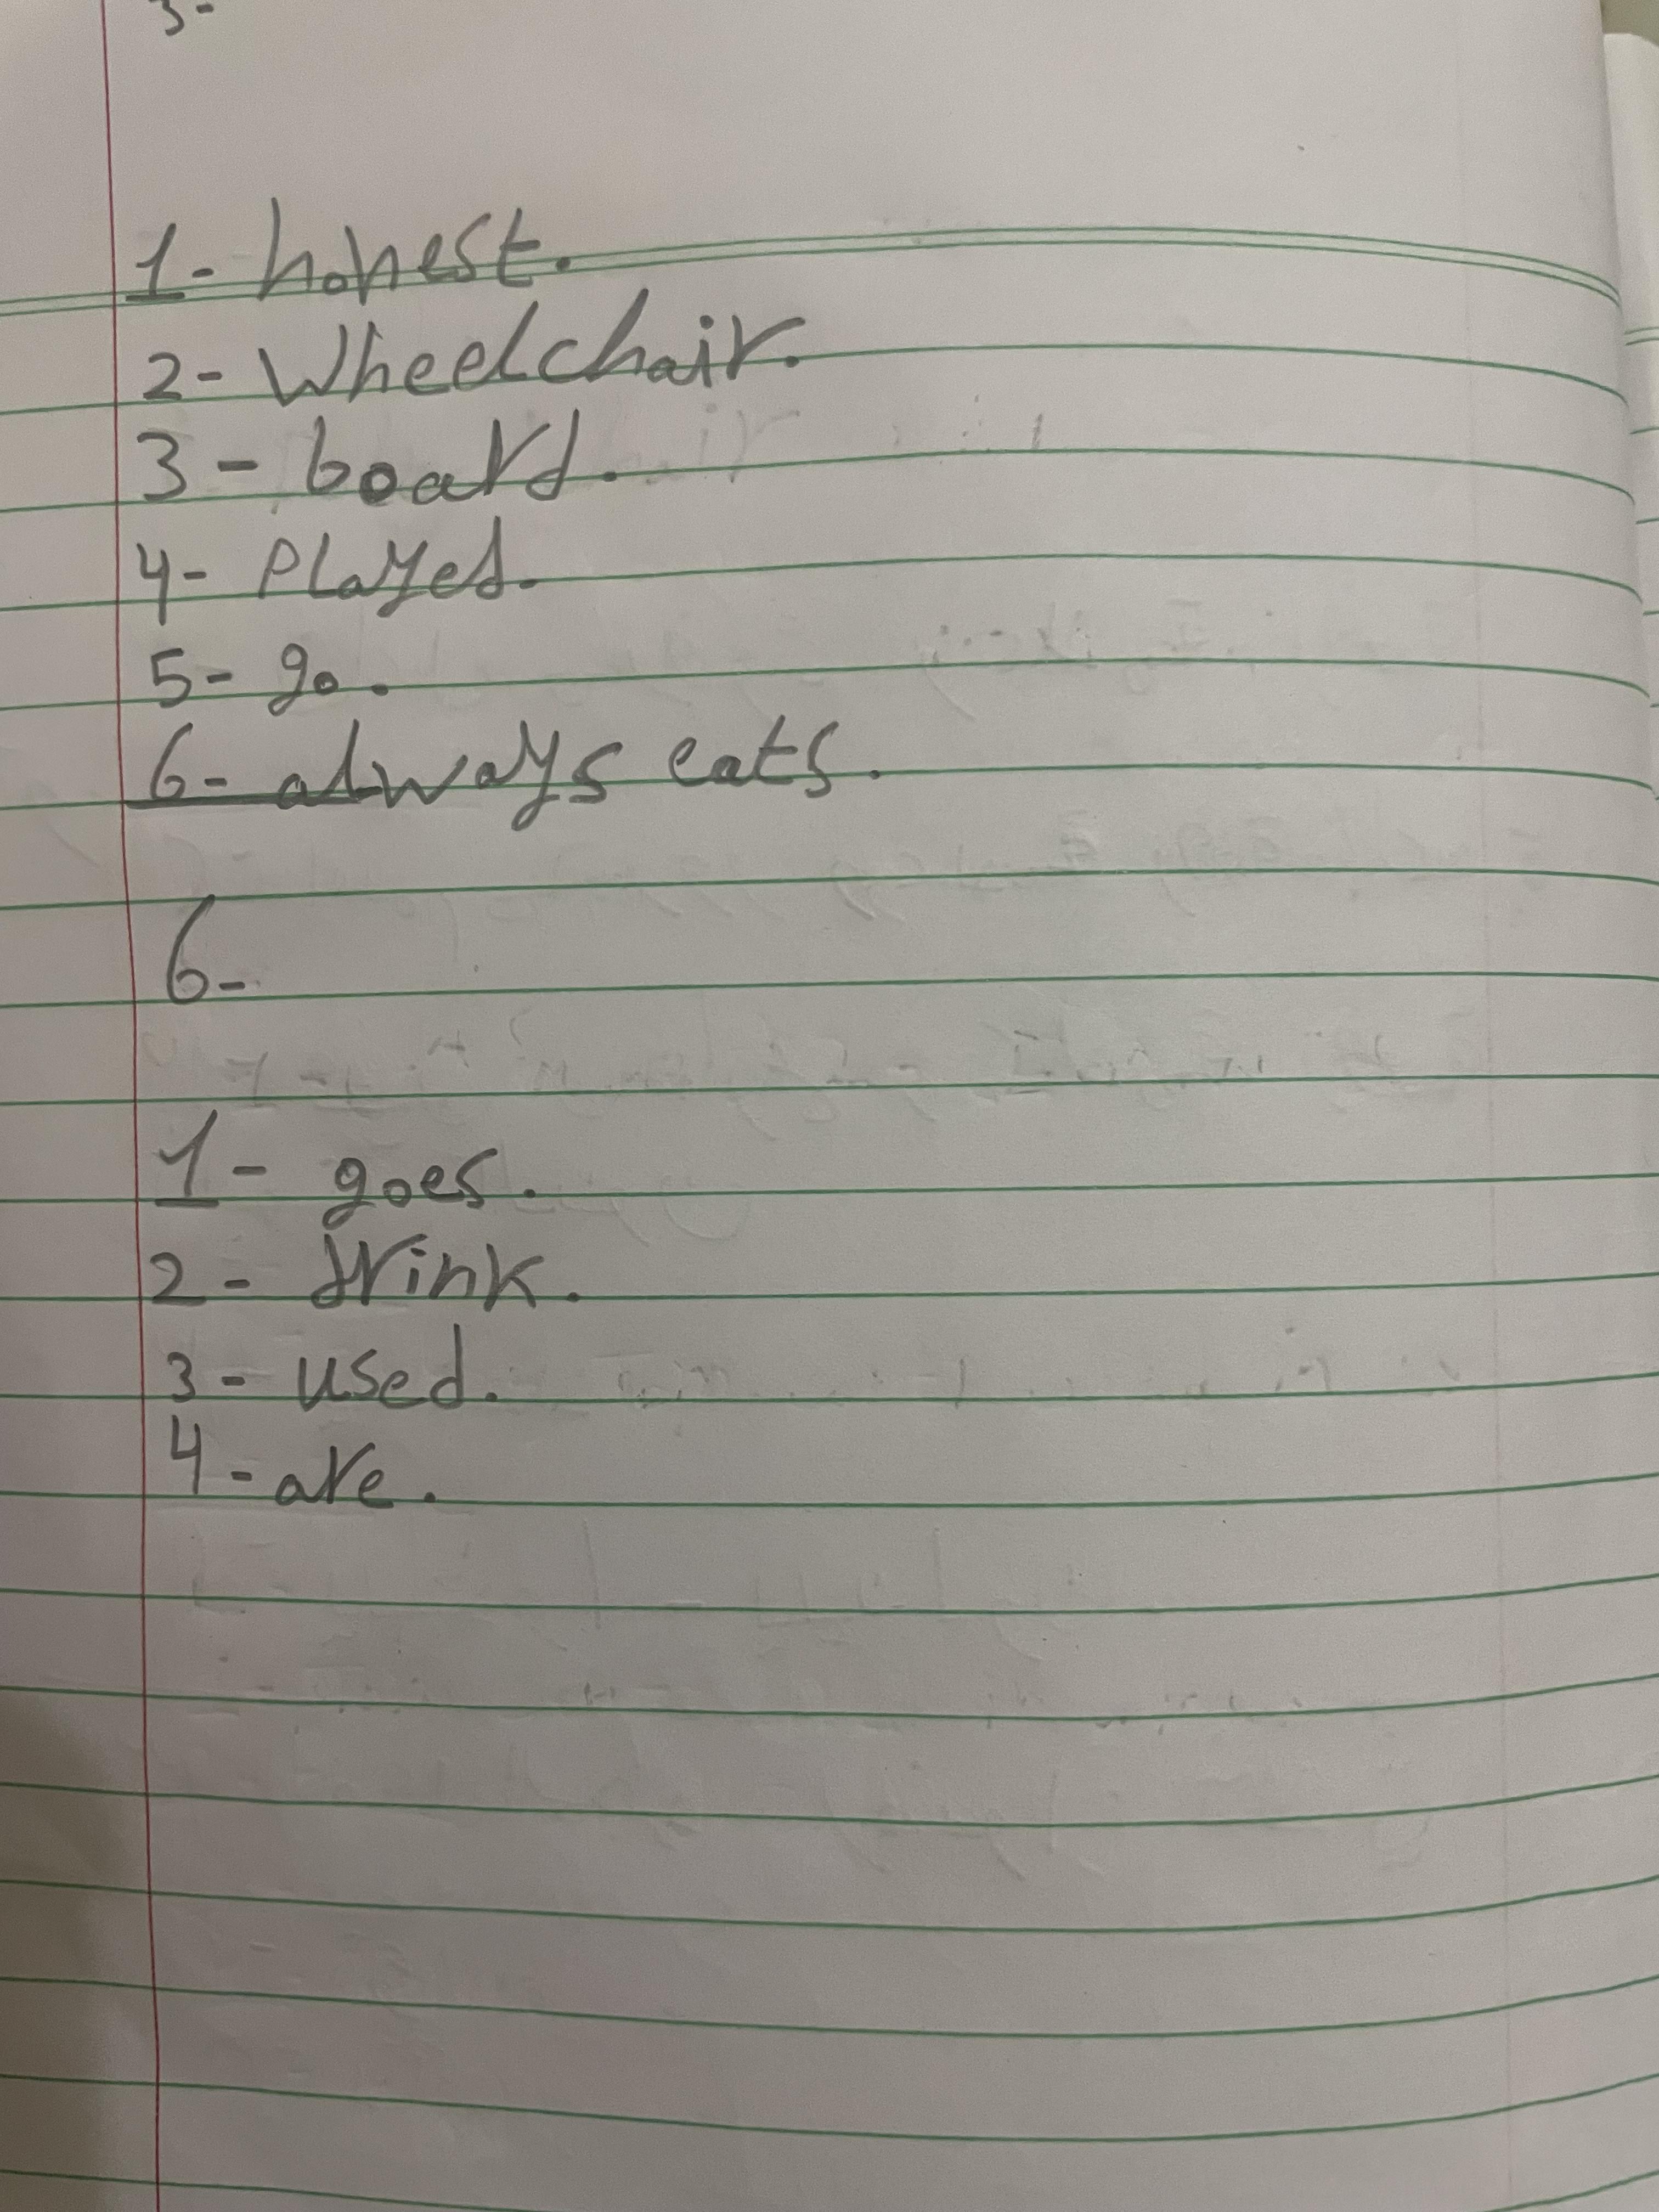 3-
1- honest.
2- Wheelchair.
3- board.
4- Played.
5- go.
6- always eats.
6-
1- goes.
2- drink.
3- used.
4- are.